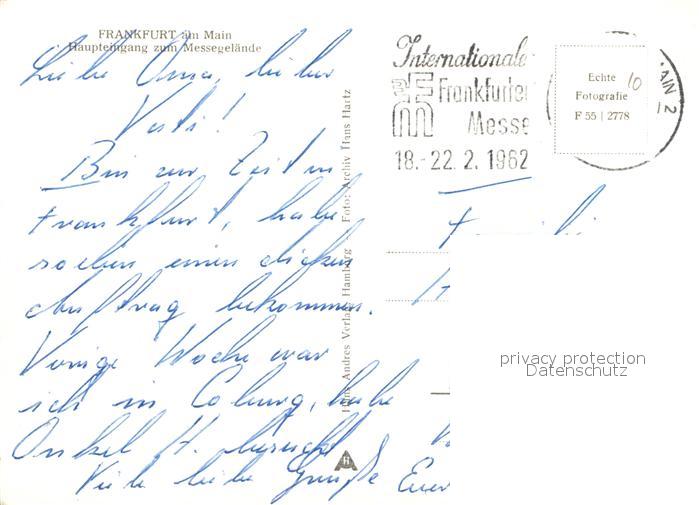 FRANKFURT am Main
Haupteingang zum Messegelände
Liebe Oma, lieber
Vati!
Bin zur Zeit in
Frankfurt, habe
soeben einen dicken
Auftrag bekommen.
Vorige Woche war
ich in Coburg, habe
Onkel H. besucht
Viele liebe Grüße Euer
Hans Andres Verlag Hamburg - Foto: Archiv Hans Hartz
Internationale
Frankfurter
Messe
18.-22. 2. 1962
Echte
Fotografie
F 55 | 2778
10
MAIN 2
privacy protection
Datenschutz